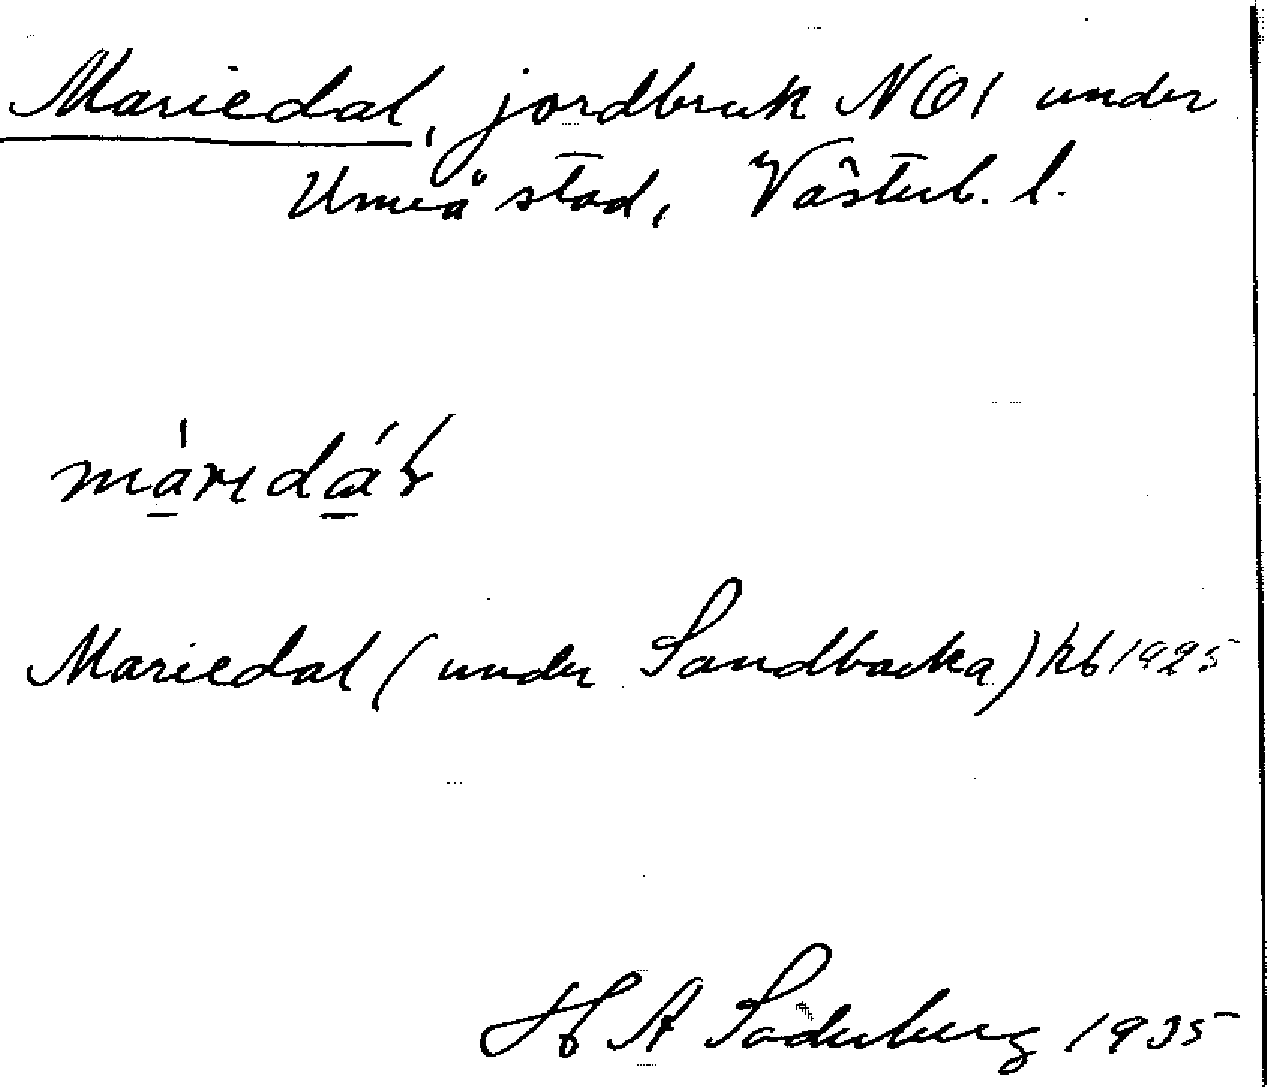 Mariedal, jordbruk NO1 under
Umeå stad, Västerb. l.
máridáł
Mariedal (under Sandbacka) kb 1925
H A Söderberg 1935